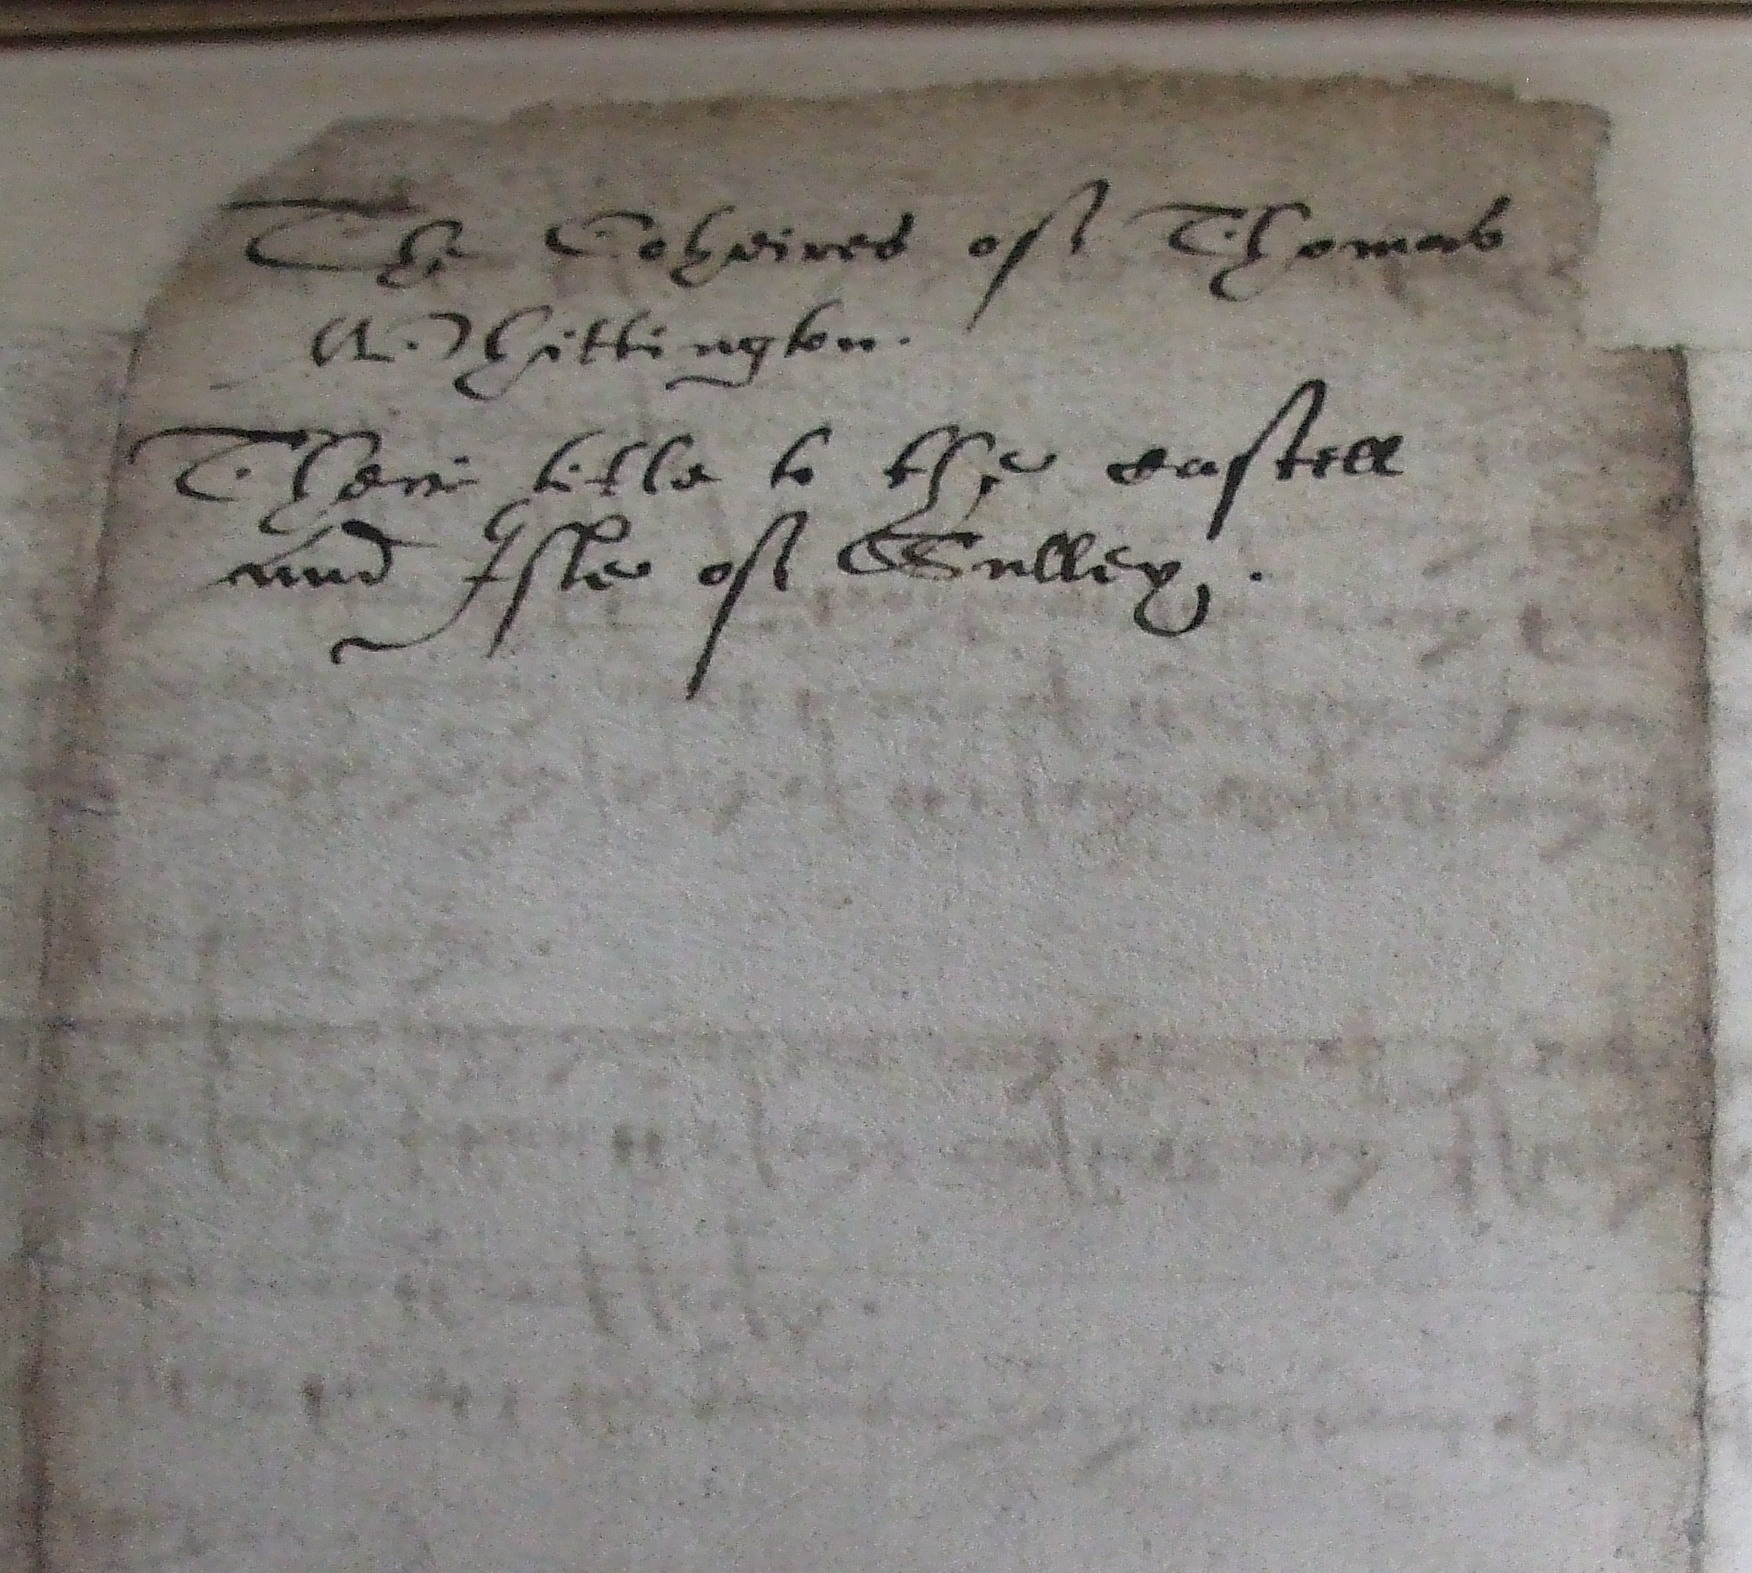 The Coheires off Thomas
Whittington.
Their title to the castell
and Isle off Sulley.